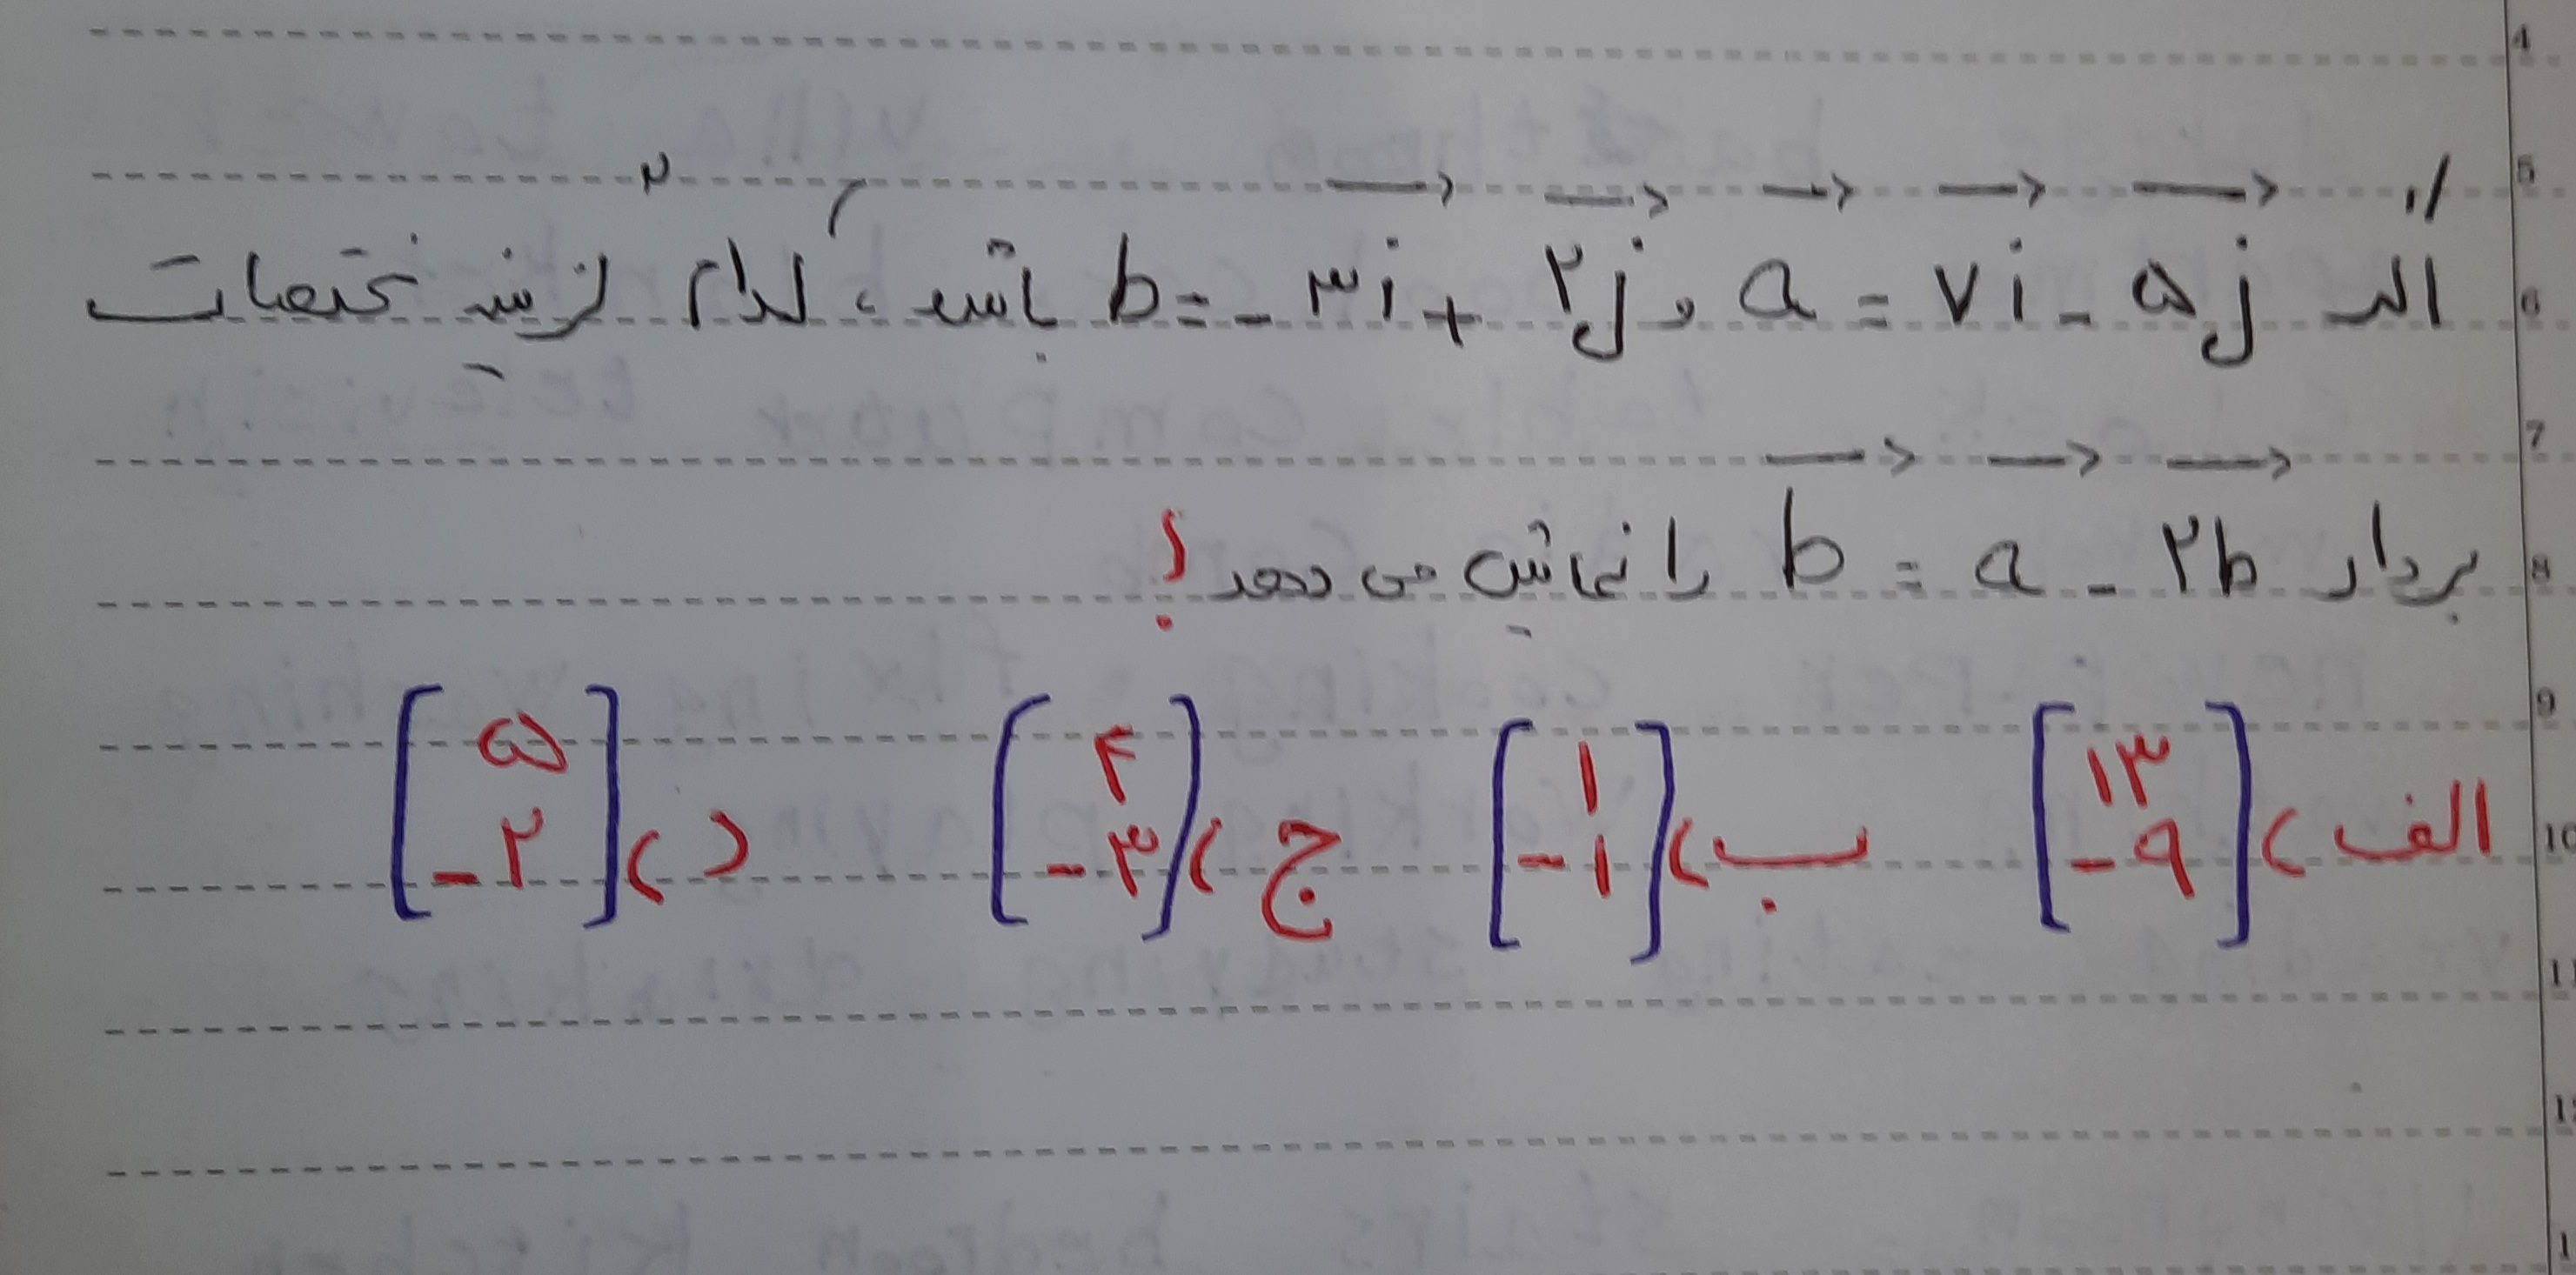 اگر a = ۷i - ۵j و b = -۳i + ۲j باشد، کدام گزینه مختصات
بردار b = a - ۲b را نمایش می دهد؟
الف) [۱۳ -۹] ب) [۱ -۱] ج) [۴ -۳] د) [۵ -۲]
4
5
6
7
8
9
10
11